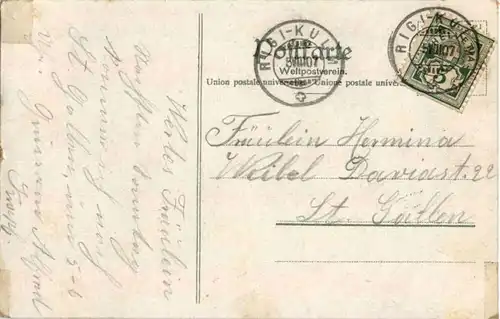 Postkarte
Weltpostverein.
Union postale universelle. Union postale universelle.
RIGI-KULM
5.VIII.07
RIGI-KULM
5.VIII.07
5
Fräulein Hermina
Weibel Davidst. 22
St. Gallen
Wertes Fräulein
Nächsten Sonntag
komme ich nach
St. Gallen, um 5-6
Uhr.